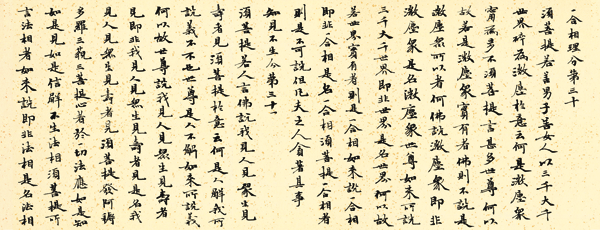 一合相理分第三十
須菩提若善男子善女人以三千大千
世界碎為微塵於意云何是微塵眾
寧為多不須菩提言甚多世尊何以
故若是微塵眾實有者佛則不說是
微塵眾所以者何佛說微塵眾即非
微塵眾是名微塵眾世尊如來所說
三千大千世界即非世界是名世界何以故
若世界實有者則是一合相如來說一合相
即非一合相是名一合相須菩提一合相者
則是不可說但凡夫之人貪著其事
知見不生分第三十一
須菩提若人言佛說我見人見眾生見
壽者見須菩提於意云何是人解我所
說義不不也世尊是人不解如來所說義
何以故世尊說我見人見眾生見壽者
見即非我見人見眾生見壽者見是名我
見人見眾生見壽者見須菩提發阿耨
多羅三藐三菩提心者於一切法應如是知
如是見如是信解不生法相須菩提所
言法相者如來說即非法相是名法相